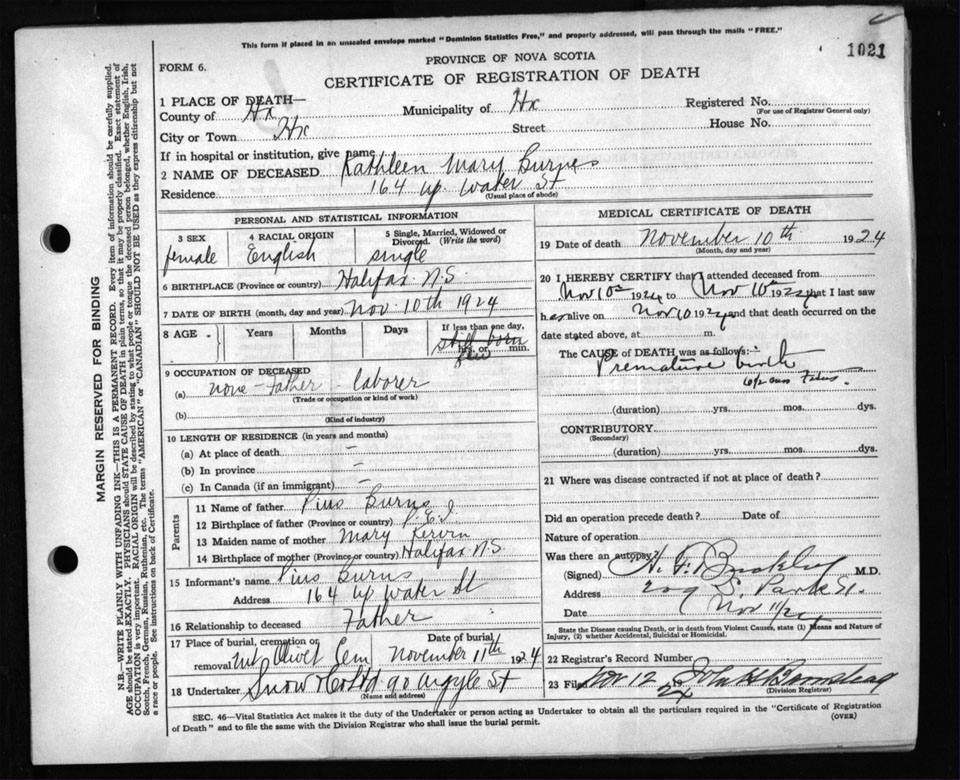 This form if placed in an unsealed envelope marked "Dominion Statistics Free," and properly addressed, will pass through the mails "FREE."
1021
FORM 6.
PROVINCE OF NOVA SCOTIA
CERTIFICATE OF REGISTRATION OF DEATH
1 PLACE OF DEATH—
County of Hx Municipality of Hx Registered No.
(For use of Registrar General only)
City or Town Hx Street House No.
If in hospital or institution, give name
2 NAME OF DECEASED Kathleen Mary Burns
Residence 164 up. water St
(Usual place of abode)
PERSONAL AND STATISTICAL INFORMATION
3 SEX
female
4 RACIAL ORIGIN
English
5 Single, Married, Widowed or Divorced. (Write the word)
single
6 BIRTHPLACE (Province or country) Halifax N.S.
7 DATE OF BIRTH (month, day and year) Nov 10th 1924
8 AGE Years Months Days If less than one day,
still born
hrs. or min.
9 OCCUPATION OF DECEASED
(a) none - Father - laborer
(Trade or occupation or kind of work)
(b)
(Kind of industry)
10 LENGTH OF RESIDENCE (in years and months)
(a) At place of death —
(b) In province —
(c) In Canada (if an immigrant) —
Parents
11 Name of father Pius Burns
12 Birthplace of father (Province or country) P.E.I.
13 Maiden name of mother Mary
14 Birthplace of mother (Province or country) Halifax N.S.
15 Informant's name Pius Burns
Address 164 up water St
16 Relationship to deceased Father
17 Place of burial, cremation or removal Mt Olivet Cem
Date of burial November 11th 1924
18 Undertaker Snow & Co Ltd 90 Argyle St
(Name and address)
MEDICAL CERTIFICATE OF DEATH
19 Date of death November 10th 1924
(Month, day and year)
20 I HEREBY CERTIFY that I attended deceased from
Nov 10th 1924 to Nov 10th 1924 that I last saw
her alive on Nov 10 1924 and that death occurred on the
date stated above, at m.
The CAUSE of DEATH was as follows:
Premature birth
(duration) yrs. mos. dys.
CONTRIBUTORY
(Secondary)
(duration) yrs. mos. dys.
21 Where was disease contracted if not at place of death?
Did an operation precede death? Date of
Nature of operation
Was there an autopsy?
(Signed) M.D.
Address 209 S. Park St.
Date Nov 11/24
State the Disease causing Death, or in death from Violent Causes, state (1) Means and Nature of
Injury, (2) whether Accidental, Suicidal or Homicidal.
22 Registrar's Record Number
23 Filed Nov 12 1924 John H Barnstead
(Division Registrar)
SEC. 46—Vital Statistics Act makes it the duty of the Undertaker or person acting as Undertaker to obtain all the particulars required in the "Certificate of Registration
of Death" and to file the same with the Division Registrar who shall issue the burial permit.
(OVER)
MARGIN RESERVED FOR BINDING
N.B.—WRITE PLAINLY WITH UNFADING INK—THIS IS A PERMANENT RECORD. Every item of information should be carefully supplied.
AGE should be stated EXACTLY. PHYSICIANS should STATE CAUSE OF DEATH in plain terms, so that it may be properly classified. Exact statement of
OCCUPATION is very important. RACIAL ORIGIN will be described by stating to what people or tongue the deceased person belonged, whether English, Irish,
Scotch, French, German, Russian, Ruthenian, etc. The terms "AMERICAN" or "CANADIAN" SHOULD NOT BE USED as they express citizenship but not
a race or people. See instructions on back of Certificate.